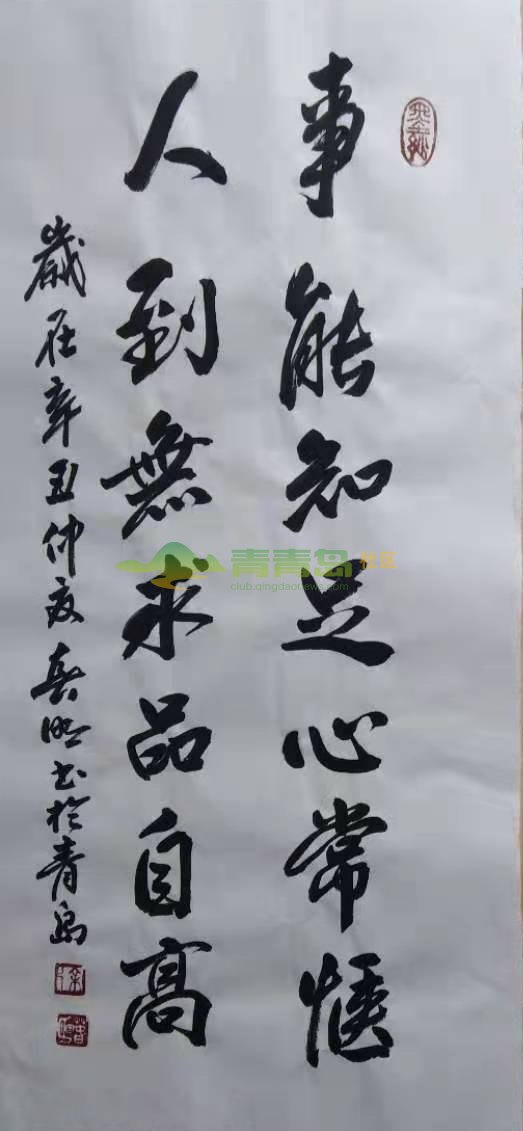 事能知足心常惬
人到無求品自高
歲在辛丑仲夏春明书於青島
青青岛社区
club.qingdaonews.com